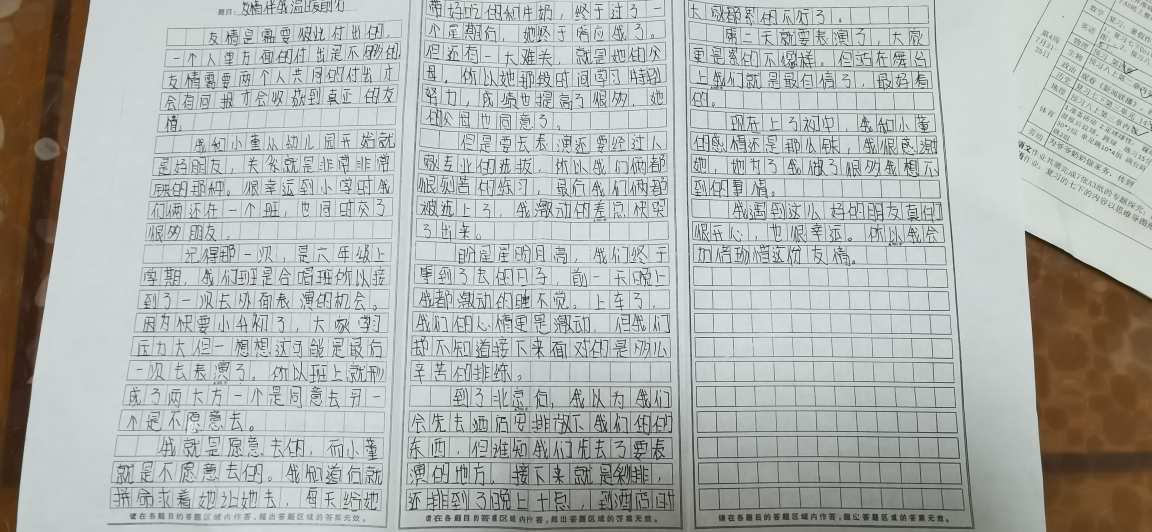 友情是需要彼此付出的,
一个人单方面的付出是不够的,
友情需要两个人共同的付出才
会有回报才会收获到真正的友
情。
我和小董从幼儿园开始就
是好朋友,关系就是非常非常
铁的那种。很幸运到小学时我
们俩还在一个班,也同时交了
很多朋友。
记得那一次,是六年级上
学期,我们班是合唱班所以接
到了一次去外面表演的机会。
因为快要小升初了,大家学习
压力大但一想想这可能是最后
一次去表演了。所以班上就形
成了两大方一个是同意去另一
个是不愿意去。
我就是愿意去的,而小董
就是不愿意去的。我知道后就
拼命求着她让她去,每天给她
带好吃的和牛奶,终于过了一
个星期后,她终于答应我了。
但还有一大难关,就是她的父
母。所以她那段时间学习特别
努力,成绩也提高了很多,她
的父母也同意了。
但是要去表演还要经过人
家专业的选拔,所以我们俩都
很刻苦的练习,最后我们俩都
被选上了,我激动的差点快哭
了出来。
盼星星盼月亮,我们终于
等到了去的日子,前一天晚上
我都激动的睡不觉。上车了,
我们的心情更是激动,但我们
却不知道接下来面对的是多么
辛苦的排练。
到了北京后,我以为我们
会先去酒店安排放下我们的的
东西,但谁知我们先去了要表
演的地方,接下来就是彩排,
还排到了晚上十点,到酒店时
大家都累的不行了。
第二天就要表演了,大家
更是累的不像样。但站在舞台
上我们就是最自信了,最好看
的。
现在上了初中,我和小董
的感情还是那么铁,我很感谢
她,她为了我做了很多我想不
到的事情。
我遇到这么好的朋友真的
很开心,也很幸运。所以我会
加倍珍惜这份友情。
请在各题目的答题区域内作答,超出答题区域的答案无效。
请在各题目的答题区域内作答,超出答题区域的答案无效。
请在各题目的答题区域内作答,超出答题区域的答案无效。